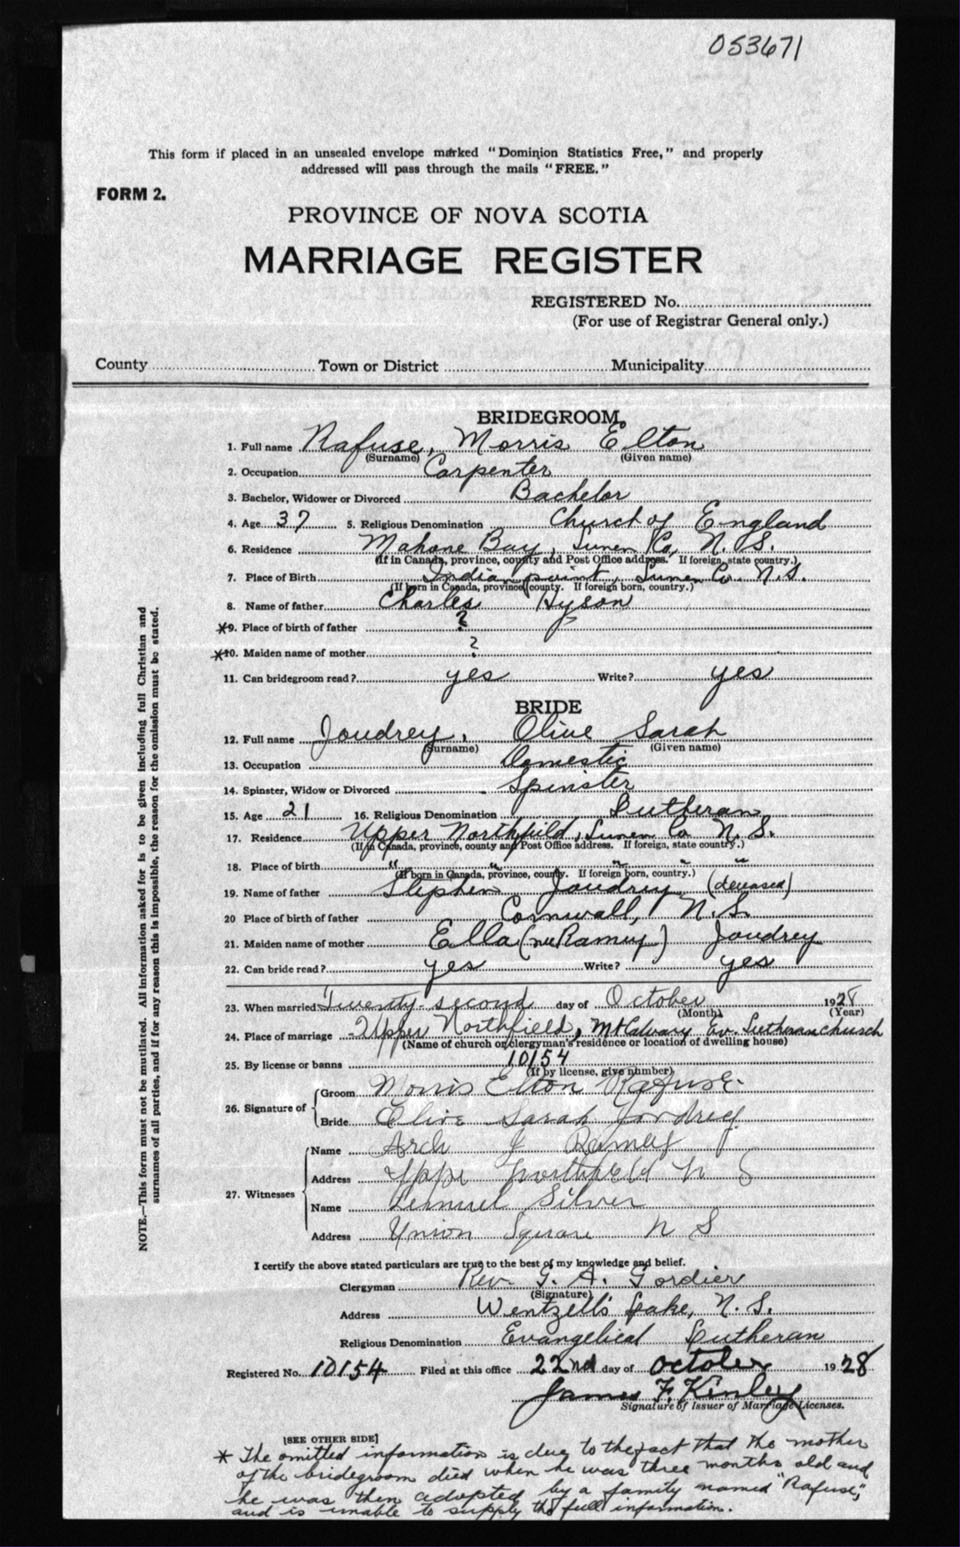 053671
This form if placed in an unsealed envelope marked "Dominion Statistics Free," and properly
addressed will pass through the mails "FREE."
FORM 2.
PROVINCE OF NOVA SCOTIA
MARRIAGE REGISTER
REGISTERED No.
(For use of Registrar General only.)
County Town or District Municipality
BRIDEGROOM
1. Full name Rafuse, Morris Elton
(Surname) (Given name)
2. Occupation Carpenter
3. Bachelor, Widower or Divorced Bachelor
4. Age 37 5. Religious Denomination Church of England
6. Residence Mahone Bay, Lunen Co, N. S.
(If in Canada, province, county and Post Office address. If foreign, state country.)
7. Place of Birth Indian point, Lunen Co. N.S.
(If born in Canada, province, county. If foreign born, country.)
8. Name of father Charles Hyson
*9. Place of birth of father ?
*10. Maiden name of mother ?
11. Can bridegroom read? yes Write? yes
BRIDE
12. Full name Joudrey, Olive Sarah
(Surname) (Given name)
13. Occupation Domestic
14. Spinster, Widow or Divorced Spinster
15. Age 21 16. Religious Denomination Lutheran
17. Residence Upper Northfield, Lunen Co N. S.
(If in Canada, province, county and Post Office address. If foreign, state country.)
18. Place of birth " " " " "
(If born in Canada, province, county. If foreign born, country.)
19. Name of father Stephen Joudrey (deceased)
20 Place of birth of father Cornwall, N.S.
21. Maiden name of mother Ella (nee Ramey) Joudrey
22. Can bride read? yes Write? yes
23. When married Twenty second day of October 1928
(Month) (Year)
24. Place of marriage Upper Northfield, Mt Calvary Ev. Lutheran church
(Name of church or clergyman's residence or location of dwelling house)
25. By license or banns 10154
(If by license, give number)
26. Signature of Groom Morris Elton Rafuse
Bride Olive Sarah Joudrey
27. Witnesses Name Arch J Ramey
Address Uppe Northfield N S
Name Lemuel Silver
Address Union Square N S
I certify the above stated particulars are true to the best of my knowledge and belief.
Clergyman Rev. G. A. Gordier
(Signature)
Address Wentzell's Lake, N. S.
Religious Denomination Evangelical Lutheran
Registered No. 10154 Filed at this office 22nd day of October 1928
James F. Kinley
Signature of Issuer of Marriage Licenses.
[SEE OTHER SIDE]
* The omitted information is due to the fact that the mother
of the bridegroom died when he was three months old and
he was then adopted by a family named "Rafuse,"
and is unable to supply the full information.
NOTE.—This form must not be mutilated. All information asked for is to be given including full Christian and
surnames of all parties, and if for any reason this is impossible, the reason for the omission must be stated.